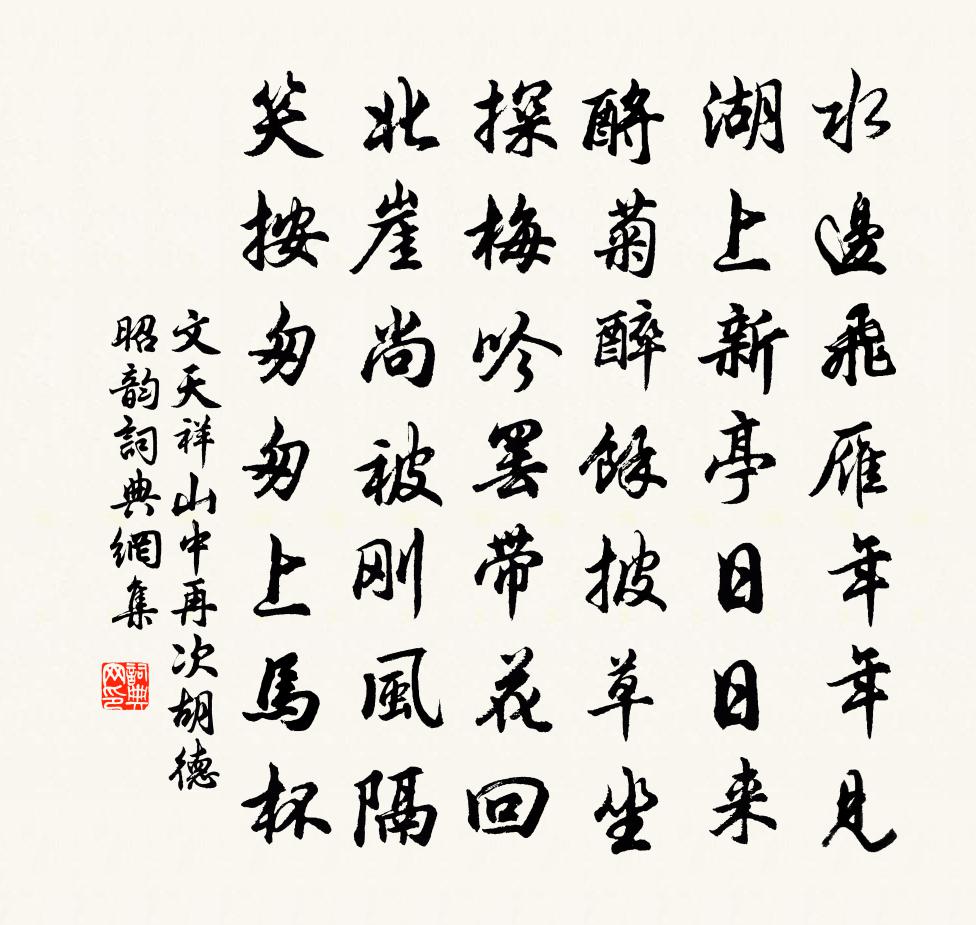 水邊飛雁年年見
湖上新亭日日来
酹菊醉餘披草坐
探梅吟罢带花回
北崖尚被刚風隔
笑按匆匆上馬杯
文天祥山中再次胡德
昭韵詞典網集
詞典网印